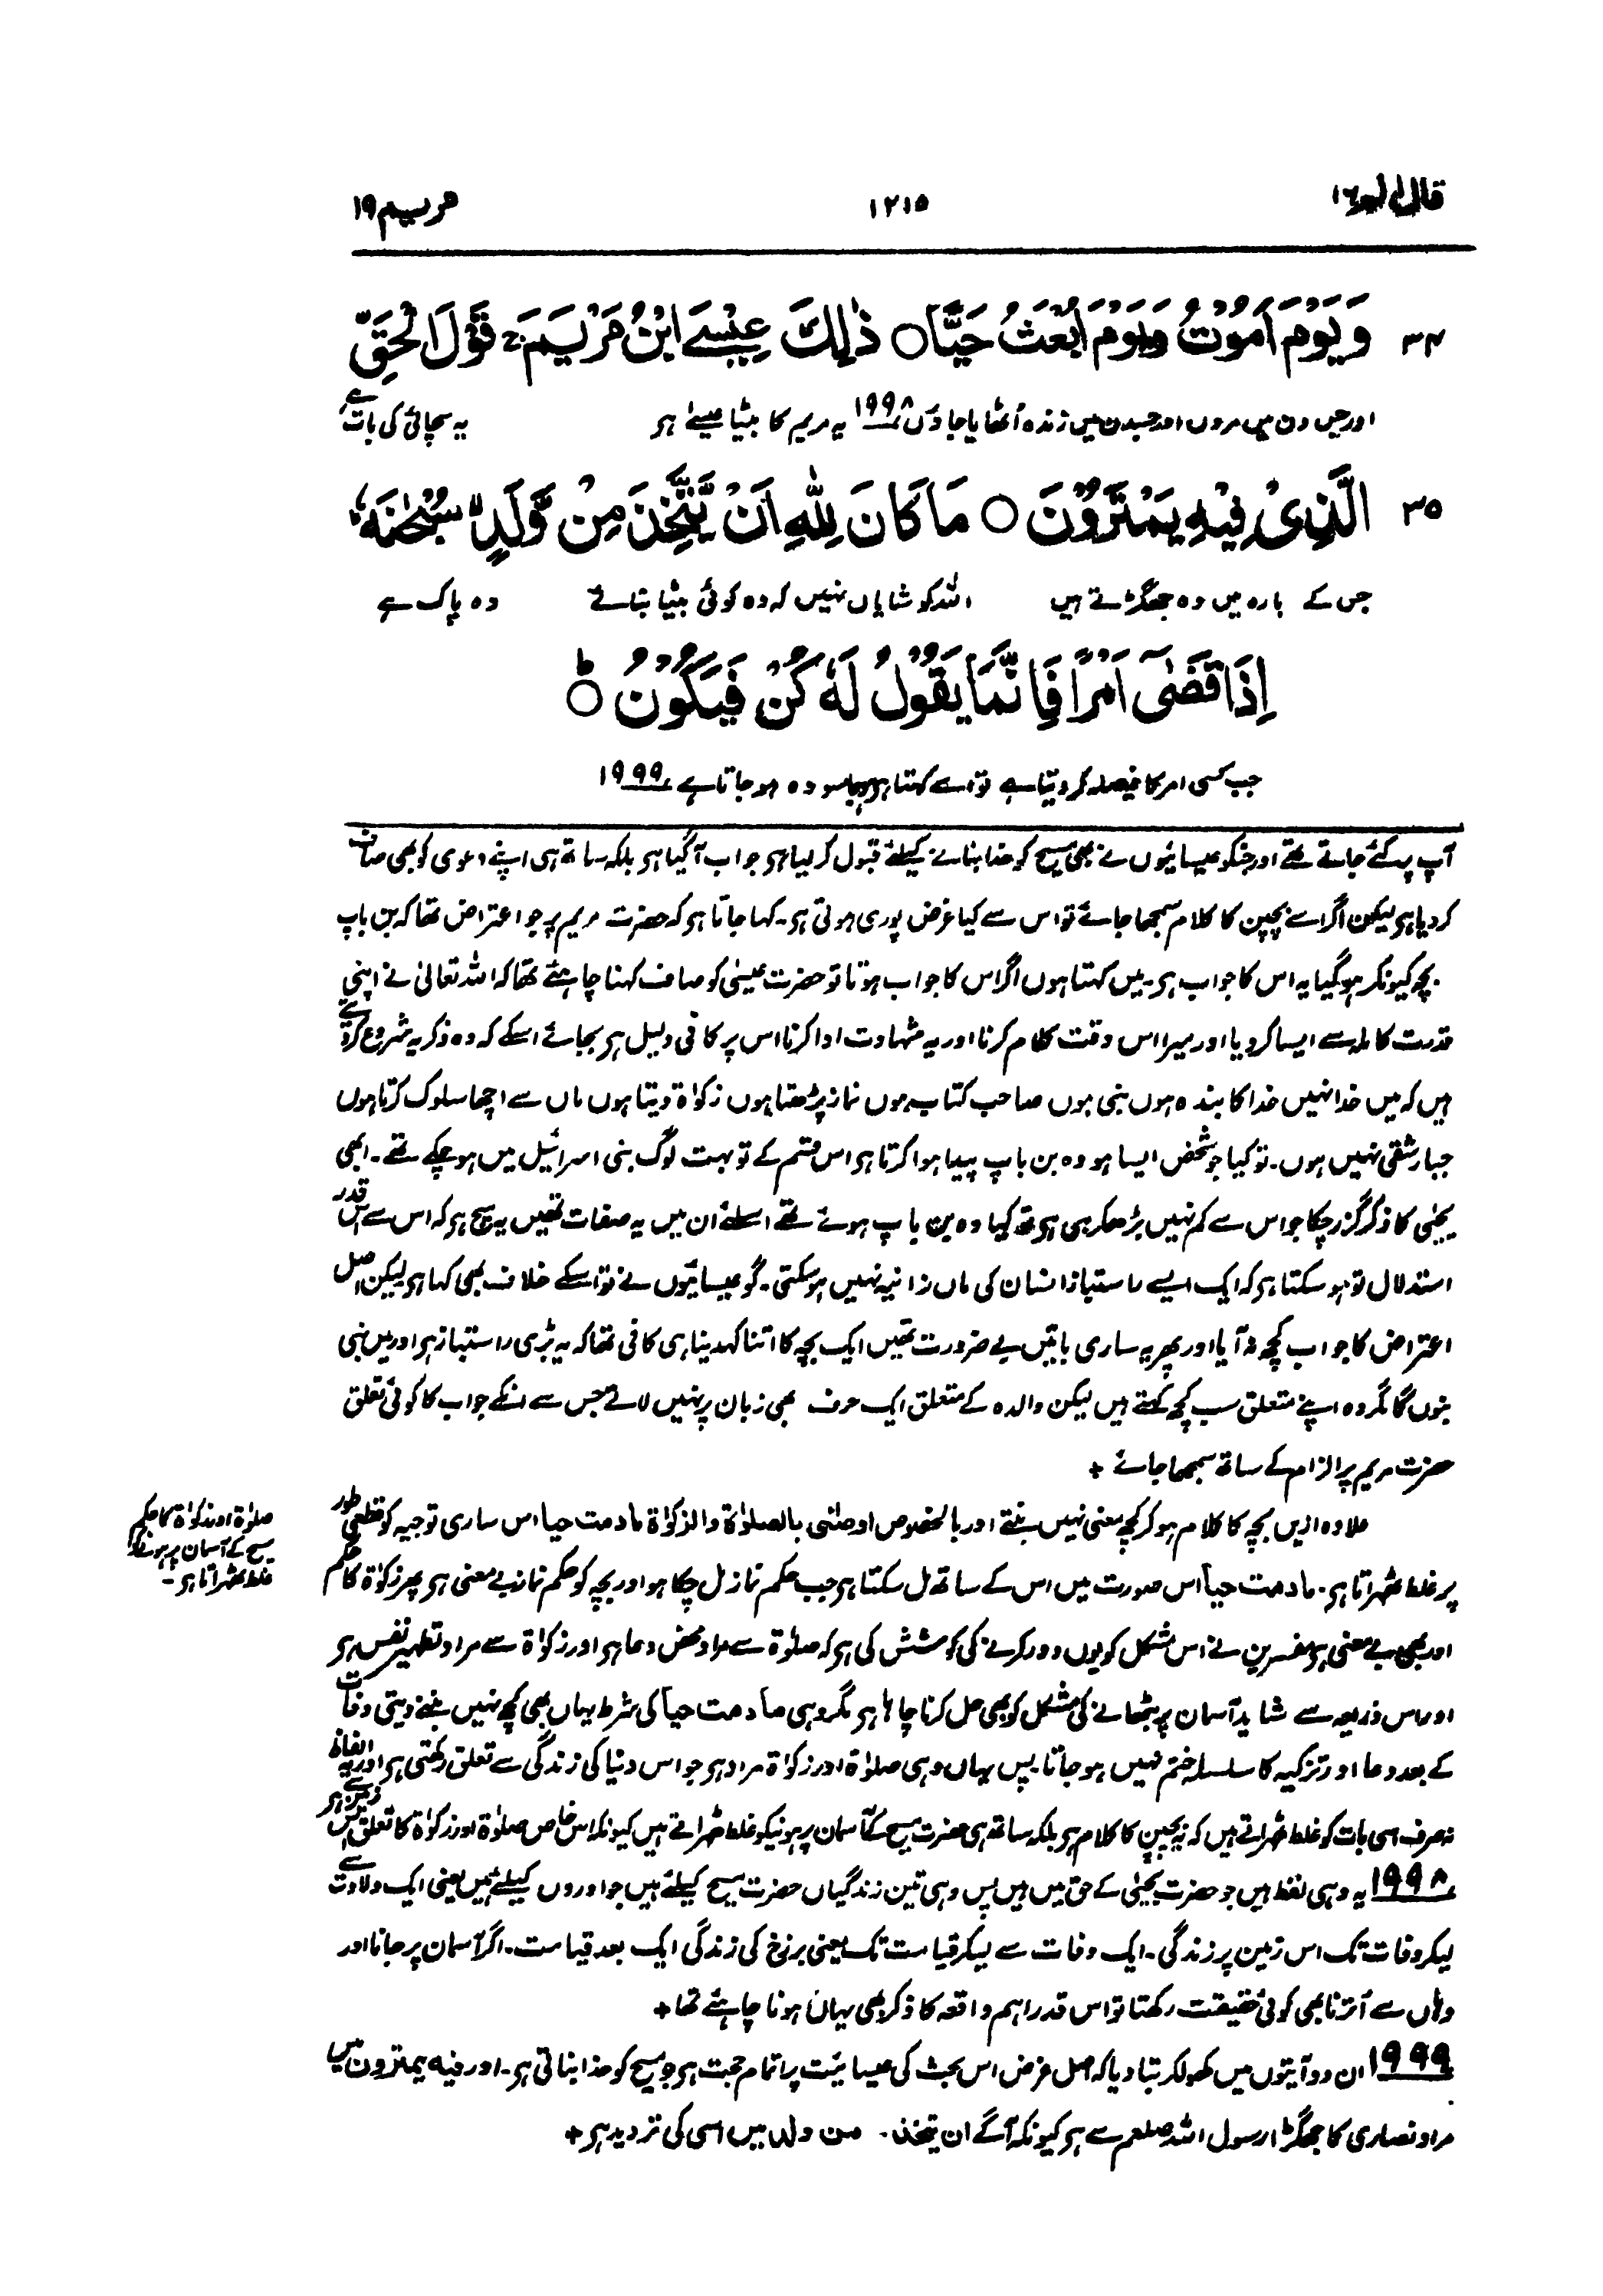 قال الم ١٦
١٢١٥
مريم ١٩
٣٤ وَيَوْمَ اَمُوْتُ وَيَوْمَ اُبْعَثُ حَيًّا○ ذٰلِكَ عِيْسَى ابْنُ مَرْيَمَ ۚ قَوْلَ الْحَقِّ
اور جس دن میں مروں اور جس دن میں زندہ اُٹھایا جاؤں ۱۹۹۸ یہ مریم کا بیٹا عیسےٰ ہے یہ سچائی کی بات ہے
٣٥ الَّذِىْ فِيْهِ يَمْتَرُوْنَ○ مَا كَانَ لِلّٰهِ اَنْ يَّتَّخِذَ مِنْ وَّلَدٍ ۙ سُبْحٰنَهٗ ؕ
جس کے بارہ میں وہ جھگڑتے ہیں اللہ کو شایاں نہیں کہ وہ کوئی بیٹا بنائے وہ پاک ہے
اِذَا قَضٰٓى اَمْرًا فَاِنَّمَا يَقُوْلُ لَهٗ كُنْ فَيَكُوْنُ ؕ○
جب کسی امر کا فیصلہ کر دیتا ہے تو اسے کہتا ہے ہوجا سو وہ ہو جاتا ہے ۱۹۹۹
آپ پر کئے جاتے تھے اور جنکو عیسائیوں نے بھی مسیح کو خدا بنانے کیلئے قبول کر لیا ہے جواب آگیا ہے بلکہ ساتھ ہی اپنے دعوی کو بھی صاف
کر دیا ہے لیکن اگر اسے بچپن کا کلام سمجھا جائے تو اس سے کیا غرض پوری ہوتی ہے۔ کہا جاتا ہے کہ حضرت مریم پر جو اعتراض تھا کہ بن باپ
بچہ کیونکر ہوگیا یہ اس کا جواب ہے۔ میں کہتا ہوں اگر اس کا جواب ہوتا تو حضرت عیسیٰ کو صاف کہنا چاہئے تھا کہ اللہ تعالیٰ نے اپنی
قدرت کاملہ سے ایسا کر دیا اور میرا اس وقت کلام کرنا اور یہ شہادت ادا کرنا اس پر کافی دلیل ہے بجائے اسکے کہ وہ ذکر یہ شروع کر دیتے
ہیں کہ میں خدا نہیں خدا کا بندہ ہوں نبی ہوں صاحب کتاب ہوں نماز پڑھتا ہوں زکوٰۃ دیتا ہوں ماں سے اچھا سلوک کرتا ہوں
جبار شقی نہیں ہوں۔ تو کیا جو شخص ایسا ہو وہ بن باپ پیدا ہوا کرتا ہے اس قسم کے تو بہت لوگ بنی اسرائیل میں ہو چکے تھے۔ ابھی
یحیٰی کا ذکر گزر چکا جو اس سے کم نہیں بڑھکر ہی ہے تو کیا وہ بن باپ ہوئے تھے اسلئے ان میں یہ صفات تھیں یہ سچ ہے کہ اس سے اس قدر
استدلال تو ہو سکتا ہے کہ ایک ایسے راستباز انسان کی ماں زانیہ نہیں ہو سکتی۔ گو عیسائیوں نے تو اسکے خلاف بھی کہا ہے لیکن اصل
اعتراض کا جواب کچھ نہ آیا اور پھر یہ ساری باتیں بے ضرورت تھیں ایک بچہ کا اتنا کہدینا ہی کافی تھا کہ یہ بڑی راستباز ہے اور میں نبی
بنوں گا مگر وہ اپنے متعلق سب کچھ کہتے ہیں لیکن والدہ کے متعلق ایک حرف بھی زبان پر نہیں لاتے جس سے انکے جواب کا کوئی تعلق
حضرت مریم پر الزام کے ساتھ سمجھا جائے +
علاوہ ازیں بچہ کا کلام ہو کر کچھ معنی نہیں بنتے اور بالخصوص اوصٰنی بالصلوٰۃ والزکوٰۃ مادمت حیا اس ساری توجیہ کو قطعی طور
صلوٰۃ اور زکوٰۃ کا حکم
مسیح کے آسمان پر ہونے کو
غلط ٹھہراتا ہے۔
پر غلط ٹھہراتا ہے۔ مادمت حیاً اس صورت میں اس کے ساتھ مل سکتا ہے جب حکم نماز مل چکا ہو اور بچہ کو حکم نماز بے معنی ہے پھر زکوٰۃ کا حکم
اور بھی بے معنی ہے مفسرین نے اس مشکل کو یوں دور کرنے کی کوشش کی ہے کہ صلوٰۃ سے مراد محض دعا ہے اور زکوٰۃ سے مراد تطہیر نفس ہے
اور اس ذریعہ سے شاید آسمان پر بٹھانے کی مشکل کو بھی حل کرنا چاہا ہے مگر وہی مادمت حیاً کی شرط یہاں بھی کچھ نہیں بننے دیتی وفات
کے بعد دعا اور تزکیہ کا سلسلہ ختم نہیں ہو جاتا۔ پس یہاں وہی صلوٰۃ اور زکوٰۃ مراد ہے جو اس دنیا کی زندگی سے تعلق رکھتی ہے اور یہ الفاظ
نہ صرف اسی بات کو غلط ٹھہراتے ہیں کہ یہ بچپن کا کلام ہے بلکہ ساتھ ہی حضرت مسیح کے آسمان پر ہونیکو غلط ٹھہراتے ہیں کیونکہ اس خاص صلوٰۃ اور زکوٰۃ کا تعلق اس زمین سے ہے
۱۹۹۸ یہ وہی لفظ ہیں جو حضرت یحیٰی کے حق میں ہیں پس وہی تین زندگیاں حضرت مسیح کیلئے ہیں جو اوروں کیلئے ہیں یعنی ایک ولادت سے
لیکر وفات تک اس زمین پر زندگی۔ ایک وفات سے لیکر قیامت تک یعنی برزخ کی زندگی ایک بعد قیامت۔ اگر آسمان پر جانا اور
وہاں سے اترنا بھی کوئی حقیقت رکھتا تو اس قدر اہم واقعہ کا ذکر بھی یہاں ہونا چاہئے تھا +
۱۹۹۹ ان دو آیتوں میں کھولکر بتا دیا کہ اصل غرض اس بحث کی عیسائیت پر اتمام حجت ہے جو مسیح کو خدا بناتی ہے۔ اور فیہ یمترون میں
مراد نصاری کا جھگڑا رسول اللہ صلعم سے ہے کیونکہ آگے ان یتخذ من ولد میں اسی کی تردید ہے +